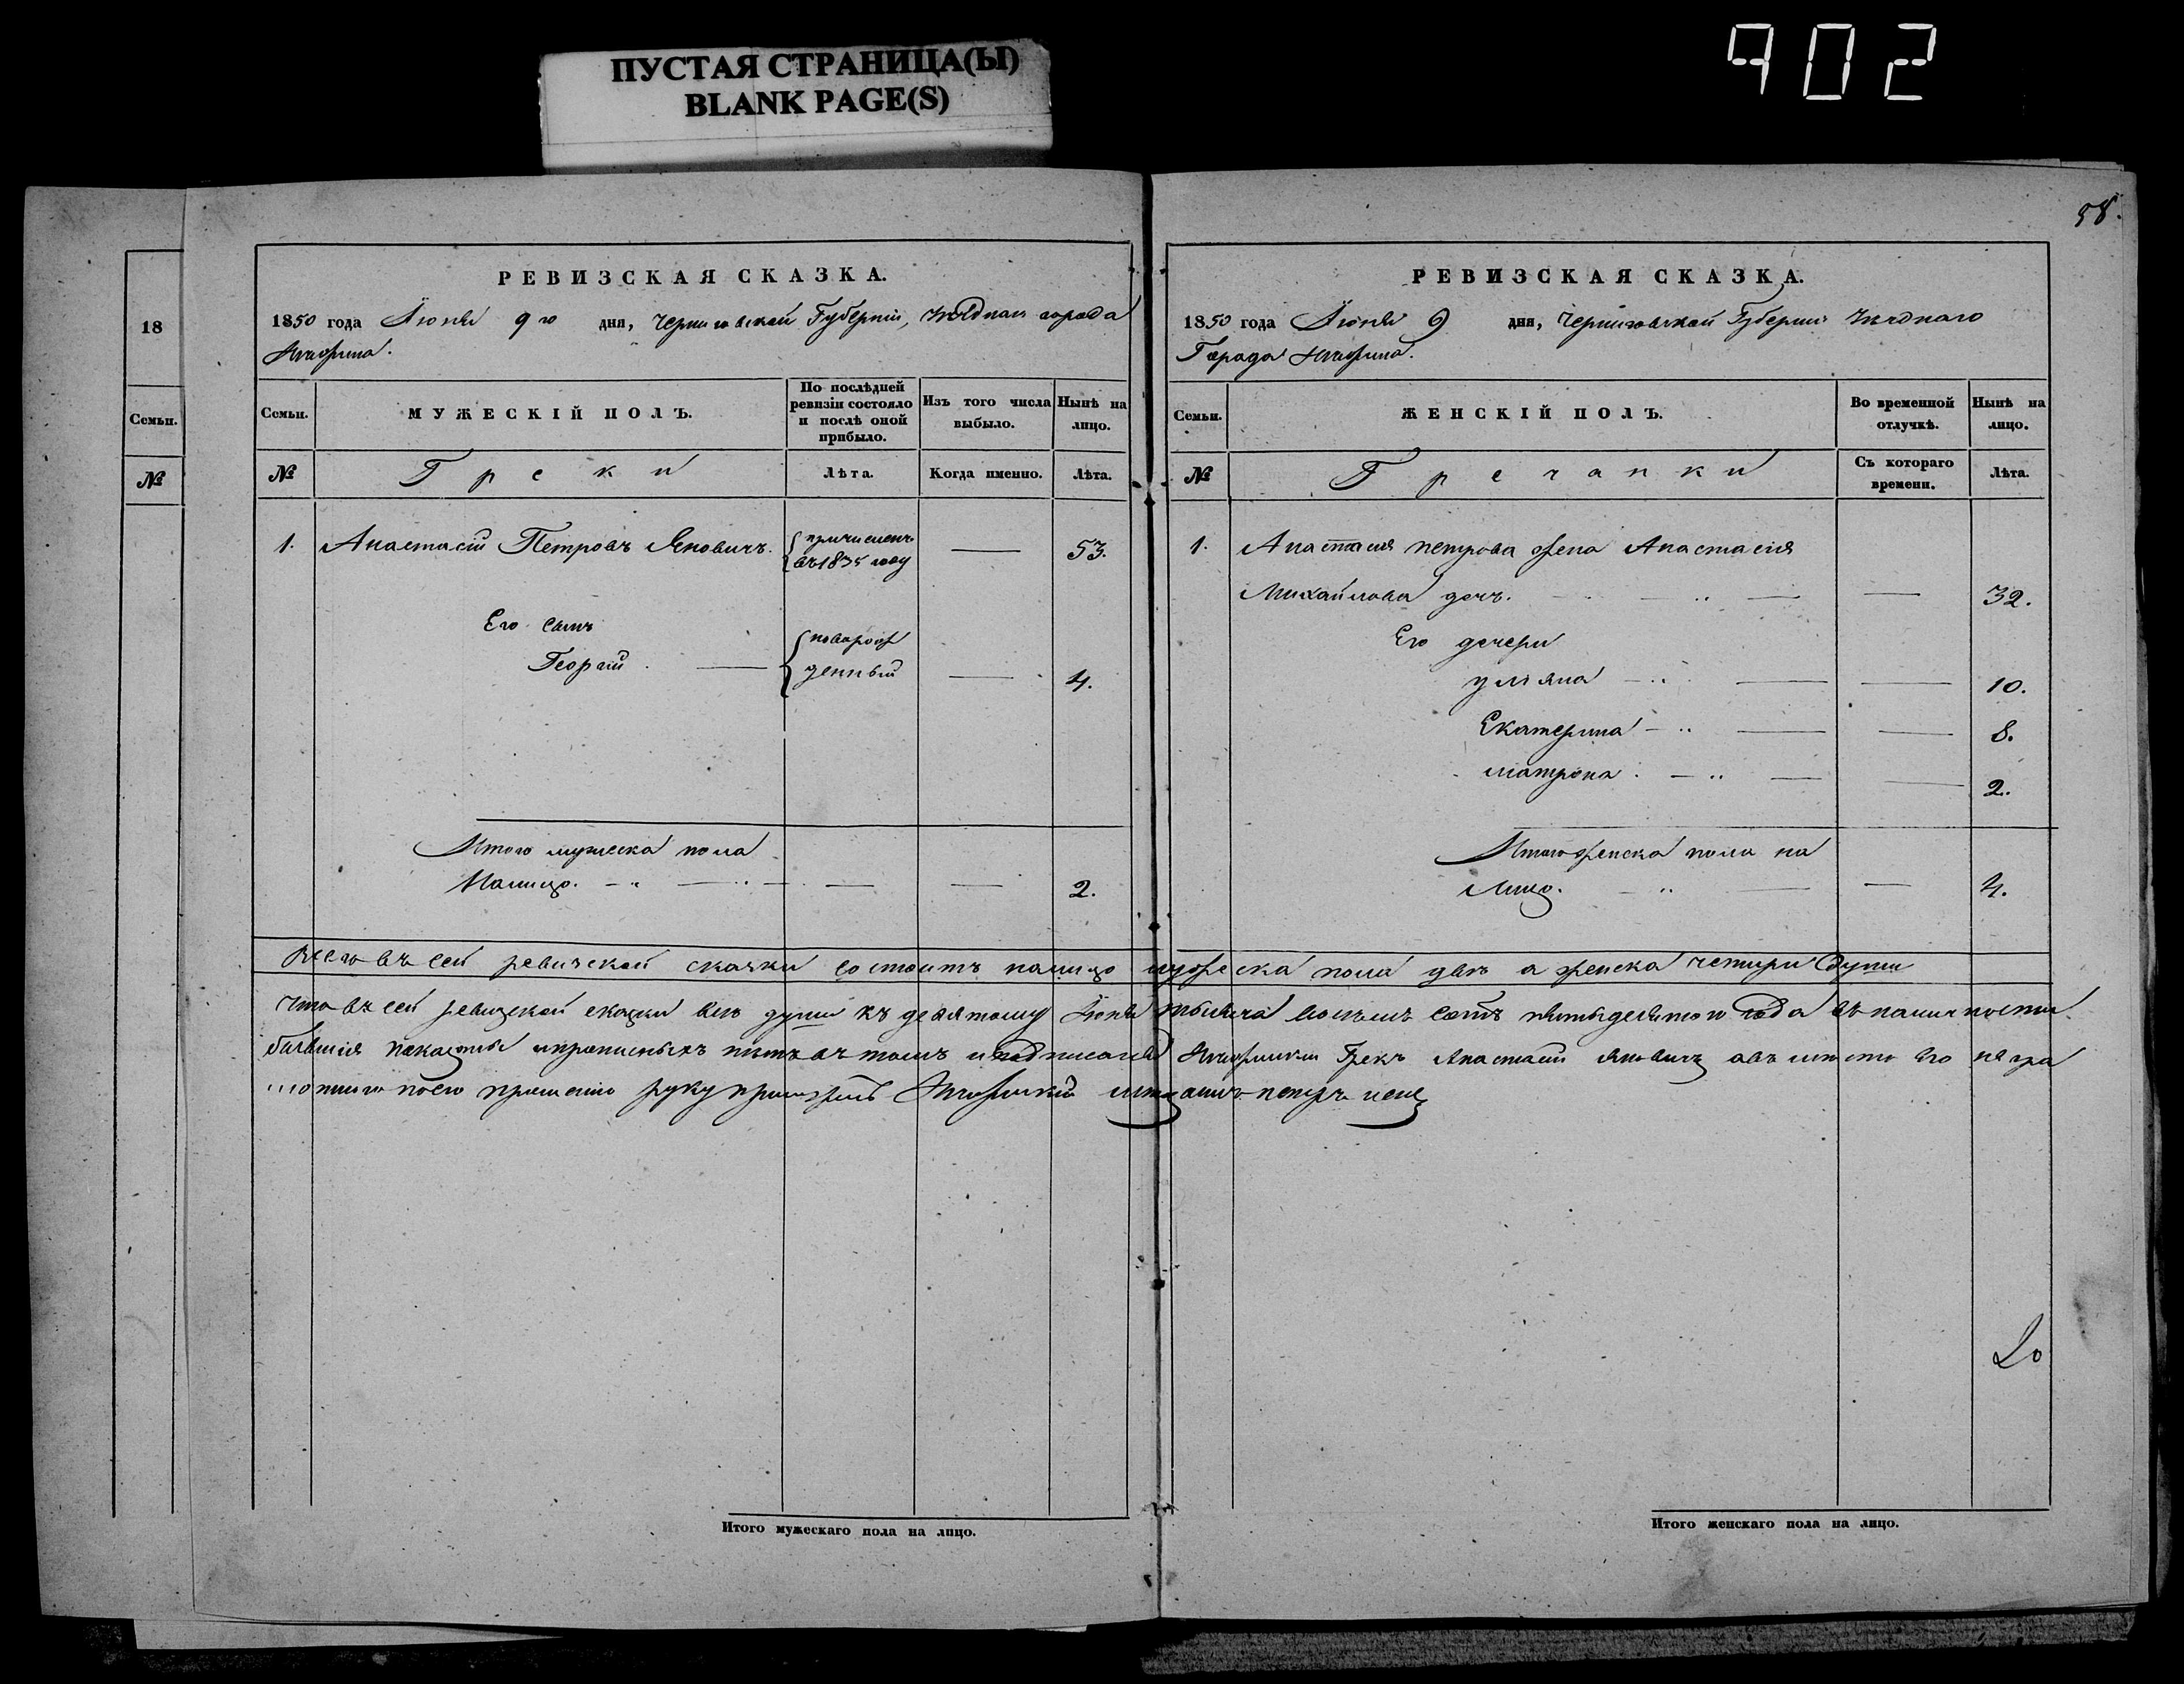 ПУСТАЯ СТРАНИЦА(Ы)
BLANK PAGE(S)
902
18
Семьи.
№
РЕВИЗСКАЯ СКАЗКА.
1850 года Июня 9го дня, Черниговской Губернии, города
Нѣжина.
Семьи.
МУЖЕСКІЙ ПОЛЪ.
По послѣдней ревизіи состояло и послѣ оной прибыло.
Изъ того числа выбыло.
Нынѣ на лицо.
№
Греки
Лѣта.
Когда именно.
Лѣта.
1. Анастасій Петровъ Яновичъ. причисленъ въ 1835 году — 53.
Его сынъ
Георгій — новорожденный — 4.
Итого мужеска пола
Налицо. — — 2.
58.
РЕВИЗСКАЯ СКАЗКА.
1850 года Июня 9 дня, Черниговской Губерніи
Города Нѣжина.
Семьи.
ЖЕНСКІЙ ПОЛЪ.
Во временной отлучкѣ.
Нынѣ на лицо.
№
Гречанки
Съ котораго времени.
Лѣта.
1. Анастасия Петрова жена Анастасія
Михайлова дочь. — — 32.
Его дочери
Уліяна — — 10.
Екатерина — — 8.
Матрона — — 2.
Итого женска пола на
Лицо. — — 4.
Всего въ сей ревизской сказки состоитъ налицо мужеска пола двѣ а женска четыри души
Что въ сей ревизской сказки всѣ души къ девятому Июня тысяча восемь сотъ пятьдесятого года въ наличности
бывшія показаны и прописныхъ нѣтъ въ томъ и подписалъ Нѣжинский Грекъ Анастасій Яновичъ а вмѣсто его негра
мотного по его прошению руку приложилъ Нѣжинский мещанинъ Петръ
20
Итого мужескаго пола на лицо.
Итого женскаго пола на лицо.